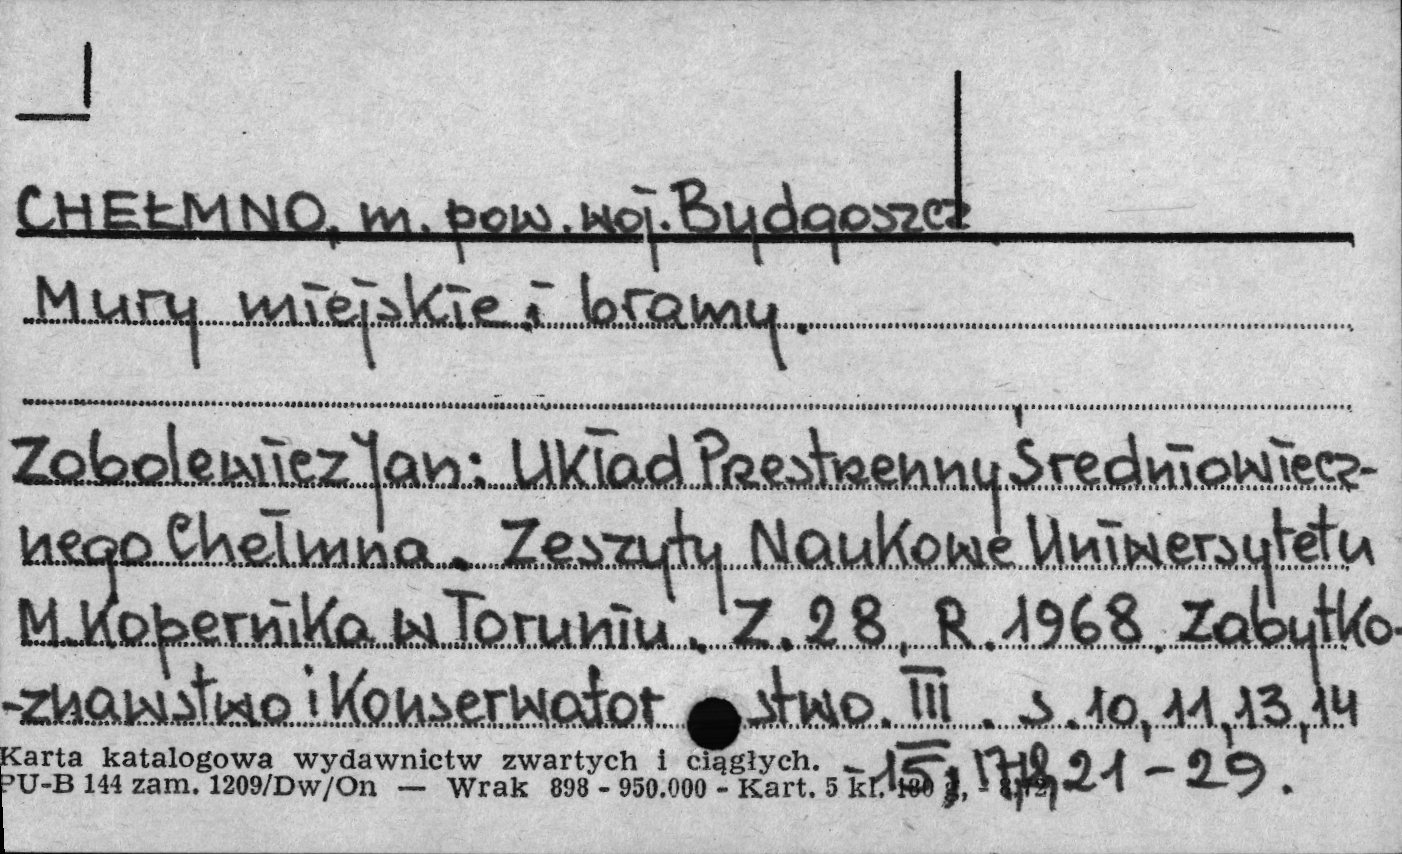 CHEŁMNO, m. pow. woj. Bydgoszcz
Mury miejskie i bramy.
Zobolewicz Jan: Układ Przestrzenny Średniowiecz-
nego Chełmna. Zeszyty Naukowe Uniwersytetu
M. Kopernika w Toruniu. Z. 28, R. 1968. Zabytko-
-znawstwo i Konserwatorstwo. III. s. 10, 11, 13, 14
-15, 17, 18, 21-29.
Karta katalogowa wydawnictw zwartych i ciągłych.
PU-B 144 zam. 1209/Dw/On — Wrak 898 - 950.000 - Kart. 5 kl.